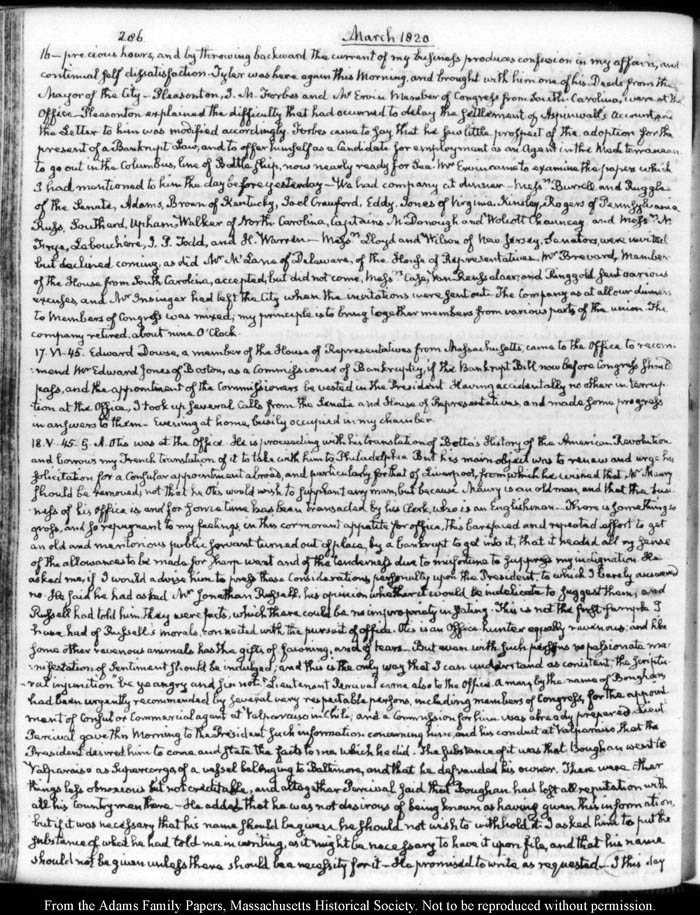 286
March 1820
16— precious hours, and by throwing backward the current of my business produces confusion in my affairs, and
continual self dissatisfaction. Tyler was here again this Morning, and brought with him one of his Deeds from the
Mayor of the City— Pleasonton, J. M. Forbes and Mr Ervin Member of Congress from South Carolina, were at the
Office. Pleasonton explained the difficulty that had occurred to delay the settlement of Aspinwall's Account, and
the Letter to him was modified accordingly. Forbes came to say that he saw little prospect of the adoption for the
present of a Bankrupt Law, and to offer himself as a Candidate for employment as an Agent in the Mediterranean
to go out in the Columbus line of Battle Ship, now nearly ready for Sea. Mr Ervin came to examine the papers which
I had mentioned to him the day before yesterday— We had company at dinner— Messrs Burrell and Ruggles
of the Senate, Adams, Brown of Kentucky, Joel Crawford, Eddy, Jones of Virginia, Kinsley, Rogers of Pennsylvania
Russ, Southard, Upham, Walker of North Carolina, Captains McDonough and Wolcott Chauncey, and Messrs
Labouchère, J. P. Todd, and H. Warren— Messrs Lloyd and Wilson of New Jersey, Senators, were invited
but declined coming, as did Mr McLane of Delaware, of the House of Representatives. Mr Brevard, Member
of the House from South Carolina, accepted, but did not come, Messrs Case, Van Rensselaer, and Ringgold sent various
excuses, and Mr Insinger had left the City when the invitations were sent out. The Company as at all our dinners
to Members of Congress was mixed; my principle is to bring together members from various parts of the union. The
company retired, about nine O'Clock.
17. VI-45. Edward Dowse, a member of the House of Representatives from Massachusetts, came to the Office to recom-
-mend Mr Edward Jones of Boston, as a Commissioner of Bankruptcy, if the Bankrupt Bill now before Congress should
pass, and the appointment of the Commissioners be vested in the President. Having accidentally no other interrup-
tion at the Office, I took up several Calls from the Senate and House of Representatives, and made some progress
in answers to them— Evening at home, busily occupied in my chamber.
18. V-45. G. A. Otis was at the Office. He is proceeding with his translation of Botta's History of the American Revolution
and borrows my French translation of it to take with him to Philadelphia. But his main object was to renew and urge his
solicitation for a Consular appointment abroad, and particularly for that of Liverpool, from which he wished that Mr Maury
should be removed; not that he Otis would wish to supplant any man, but because Maury is an old man, and that the busi-
ness of his office is and for some time has been transacted by his Clerk, who is an Englishman— There is something so
gross, and so repugnant to my feelings in this cormorant appetite for office, this barefaced and repeated effort to get
an old and meritorious public servant turned out of place, by a bankrupt to get into it, that it needed all my sense
of the allowances to be made for sharp want and of the tenderness due to misfortune to suppress my indignation. He
asked me, if I would advise him to press these Considerations personally upon the President, to which I barely answered
no. He said he had asked Mr Jonathan Russell, his opinion whether it would be indelicate to suggest them; and
Russell had told him they were facts, which there could be no impropriety in stating— This is not the first sample I
have had of Russell's morals, connected with the pursuit of office. Otis is an Office hunter equally ravenous; and like
some other ravenous animals has the gifts of fawning, and of tears. But even with such persons no passionate ma-
nifestation of sentiment should be indulged; and this is the only way that I can understand as consistent, the scriptu-
-ral injunction "be ye angry and sin not." Lieutenant Percival came also to the Office. A man by the name of Boughan
had been urgently recommended by several very respectable persons, including members of Congress, for the appoint
ment of Consul or Commercial agent at Valparaiso in Chili; and a Commission for him was already prepared. Lieut
Percival gave this Morning to the President such information concerning him, and his conduct at Valparaiso that the
President desired him to come and state the facts to me which he did. The substance of it was that Boughan went to
Valparaiso as Supercargo of a vessel belonging to Baltimore, and that he defrauded his owner. There were other
things less obnoxious but not creditable, and altogether Percival said that Boughan had lost all reputation with
all his countrymen there— He added that he was not desirous of being known as having given this information,
but if it was necessary that his name should be given he should not wish to withhold it. I asked him to put the
substance of what he had told me in writing, as it might be necessary to have it upon file, and that his name
should not be given unless there should be a necessity for it— He promised to write as requested.— I this day
From the Adams Family Papers, Massachusetts Historical Society. Not to be reproduced without permission.